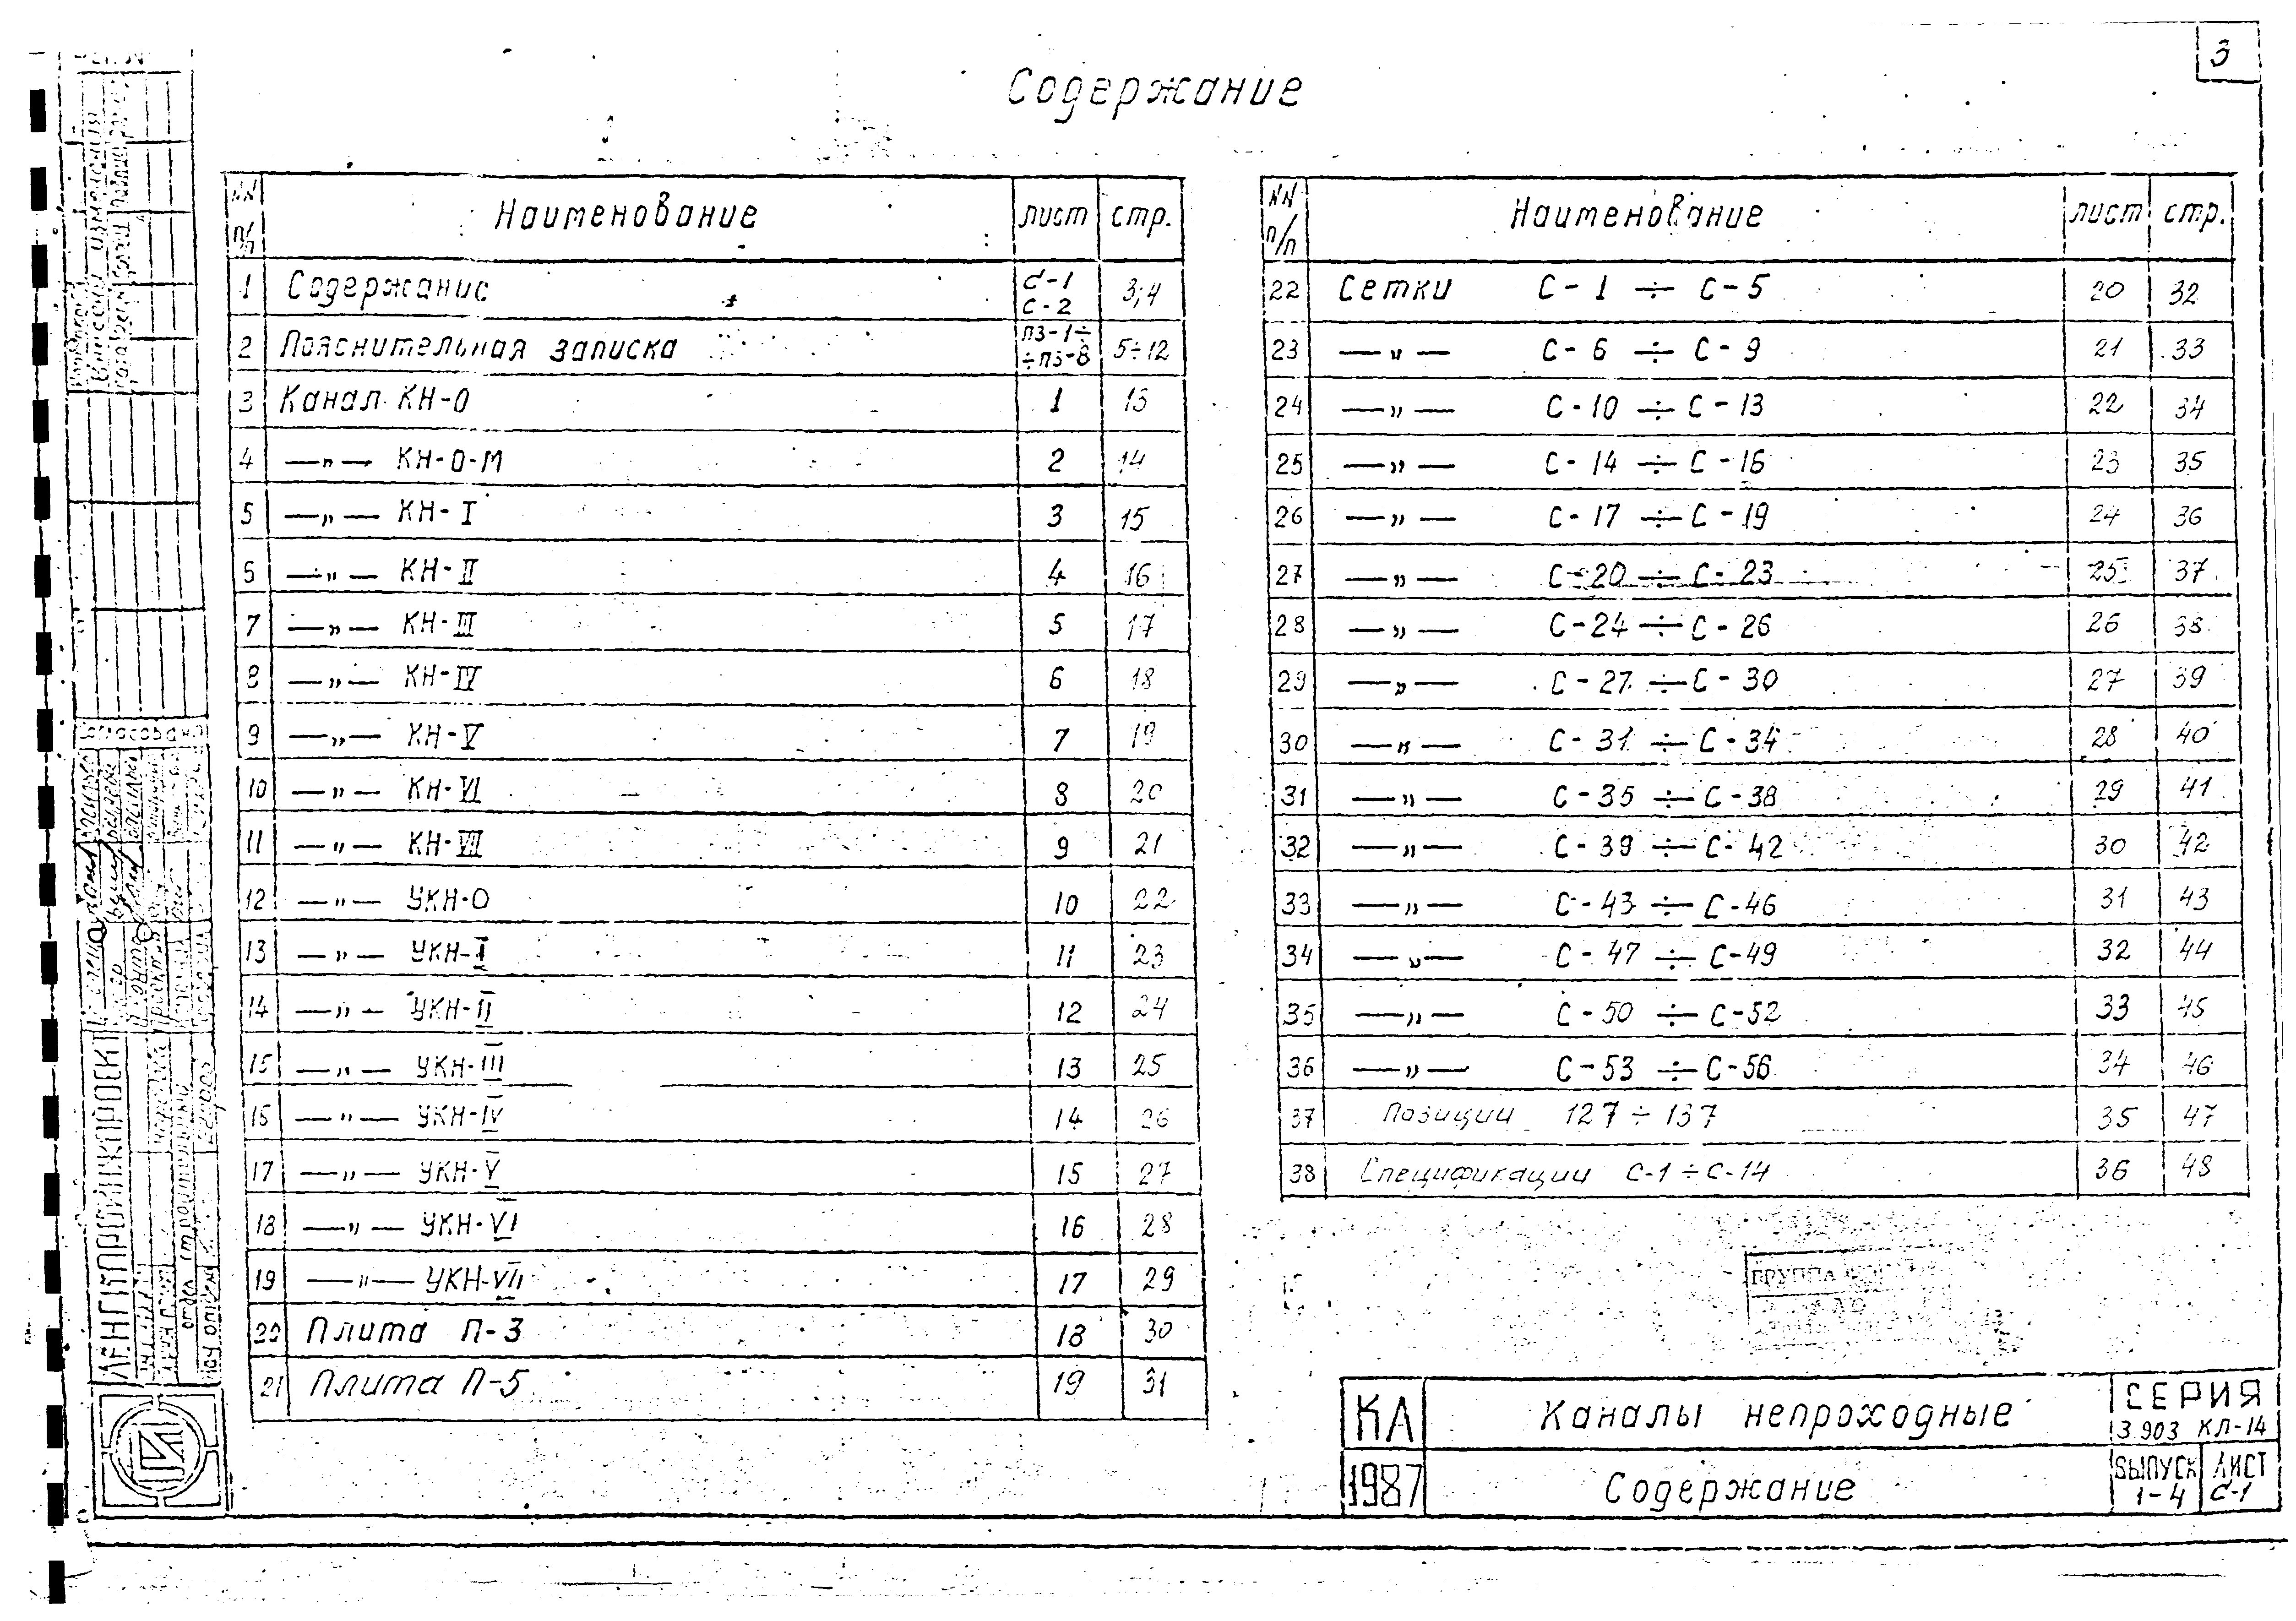 3
Содержание
NN п/п Наименование лист стр.
1 Содержание С-1 С-2 3;4
2 Пояснительная записка ПЗ-1÷ ÷ПЗ-8 5÷12
3 Канал КН-0 1 13
4 —„— КН-0-М 2 14
5 —„— КН-I 3 15
6 —„— КН-II 4 16
7 —„— КН-III 5 17
8 —„— КН-IV 6 18
9 —„— КН-V 7 19
10 —„— КН-VI 8 20
11 —„— КН-VII 9 21
12 —„— УКН-0 10 22
13 —„— УКН-I 11 23
14 —„— УКН-II 12 24
15 —„— УКН-III 13 25
16 —„— УКН-IV 14 26
17 —„— УКН-V 15 27
18 —„— УКН-VI 16 28
19 —„— УКН-VII 17 29
20 Плита П-3 18 30
21 Плита П-5 19 31
NN п/п Наименование лист стр.
22 Сетки С-1 ÷ С-5 20 32
23 —„— С-6 ÷ С-9 21 33
24 —„— С-10 ÷ С-13 22 34
25 —„— С-14 ÷ С-16 23 35
26 —„— С-17 ÷ С-19 24 36
27 —„— С-20 ÷ С-23 25 37
28 —„— С-24 ÷ С-26 26 38
29 —„— С-27 ÷ С-30 27 39
30 —„— С-31 ÷ С-34 28 40
31 —„— С-35 ÷ С-38 29 41
32 —„— С-39 ÷ С-42 30 42
33 —„— С-43 ÷ С-46 31 43
34 —„— С-47 ÷ С-49 32 44
35 —„— С-50 ÷ С-52 33 45
36 —„— С-53 ÷ С-56 34 46
37 Позиции 127 ÷ 137 35 47
38 Спецификации С-1 ÷ С-14 36 48
ГРУППА
КА Каналы непроходные СЕРИЯ 3.903 КЛ-14
1987 Содержание ВЫПУСК 1-4 ЛИСТ С-1
ЛЕНГИПРОИНЖПРОЕКТ